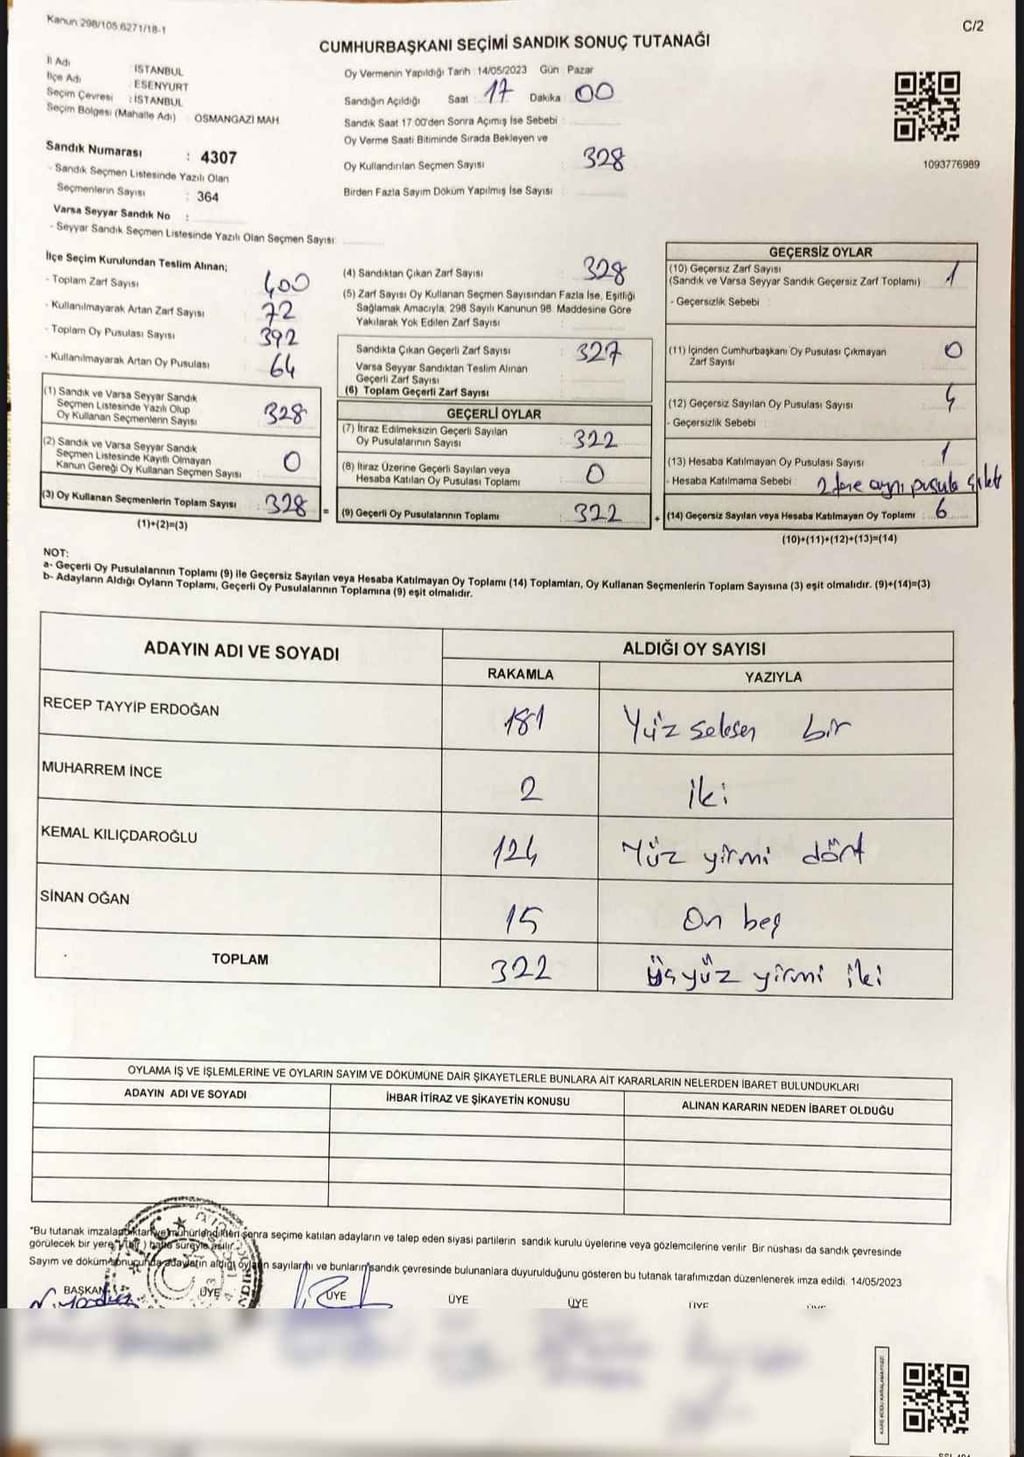 Kanun 298/105 6271/18-1
C/2
CUMHURBAŞKANI SEÇİMİ SANDIK SONUÇ TUTANAĞI
İl Adı İSTANBUL
İlçe Adı ESENYURT
Seçim Çevresi : İSTANBUL
Seçim Bölgesi (Mahalle Adı) OSMANGAZİ MAH
Sandık Numarası : 4307
- Sandık Seçmen Listesinde Yazılı Olan
Seçmenlerin Sayısı : 364
Varsa Seyyar Sandık No :
- Seyyar Sandık Seçmen Listesinde Yazılı Olan Seçmen Sayısı:
Oy Vermenin Yapıldığı Tarih :14/05/2023 Gün Pazar
Sandığın Açıldığı Saat : 17 Dakika : 00
Sandık Saat 17:00'den Sonra Açımış İse Sebebi :
Oy Verme Saati Bitiminde Sırada Bekleyen ve
Oy Kullandırılan Seçmen Sayısı : 328
Birden Fazla Sayım Döküm Yapılmış İse Sayısı :
1093776989
İlçe Seçim Kurulundan Teslim Alınan;
- Toplam Zarf Sayısı : 400
- Kullanılmayarak Artan Zarf Sayısı : 72
- Toplam Oy Pusulası Sayısı : 392
- Kullanılmayarak Artan Oy Pusulası : 64
(1) Sandık ve Varsa Seyyar Sandık
Seçmen Listesinde Yazılı Olup
Oy Kullanan Seçmenlerin Sayısı : 328
(2) Sandık ve Varsa Seyyar Sandık
Seçmen Listesinde Kayıtlı Olmayan
Kanun Gereği Oy Kullanan Seçmen Sayısı : 0
(3) Oy Kullanan Seçmenlerin Toplam Sayısı : 328 =
(1)+(2)=(3)
(4) Sandıktan Çıkan Zarf Sayısı : 328
(5) Zarf Sayısı Oy Kullanan Seçmen Sayısından Fazla İse, Eşitliği
Sağlamak Amacıyla, 298 Sayılı Kanunun 98. Maddesine Göre
Yakılarak Yok Edilen Zarf Sayısı :
Sandıkta Çıkan Geçerli Zarf Sayısı : 327
Varsa Seyyar Sandıktan Teslim Alınan
Geçerli Zarf Sayısı :
(6) Toplam Geçerli Zarf Sayısı :
GEÇERLİ OYLAR
(7) İtiraz Edilmeksizin Geçerli Sayılan
Oy Pusulalarının Sayısı : 322
(8) İtiraz Üzerine Geçerli Sayılan veya
Hesaba Katılan Oy Pusulası Toplamı : 0
(9) Geçerli Oy Pusulalarının Toplamı : 322 +
GEÇERSİZ OYLAR
(10) Geçersiz Zarf Sayısı : 1
(Sandık ve Varsa Seyyar Sandık Geçersiz Zarf Toplamı)
- Geçersizlik Sebebi :
(11) İçinden Cumhurbaşkanı Oy Pusulası Çıkmayan : 0
Zarf Sayısı
(12) Geçersiz Sayılan Oy Pusulası Sayısı : 4
- Geçersizlik Sebebi :
(13) Hesaba Katılmayan Oy Pusulası Sayısı : 1
- Hesaba Katılmama Sebebi : 2 tane aynı pusula
(14) Geçersiz Sayılan veya Hesaba Katılmayan Oy Toplamı : 6
(10)+(11)+(12)+(13)=(14)
NOT:
a- Geçerli Oy Pusulalarının Toplamı (9) ile Geçersiz Sayılan veya Hesaba Katılmayan Oy Toplamı (14) Toplamları, Oy Kullanan Seçmenlerin Toplam Sayısına (3) eşit olmalıdır. (9)+(14)=(3)
b- Adayların Aldığı Oyların Toplamı, Geçerli Oy Pusulalarının Toplamına (9) eşit olmalıdır.
ADAYIN ADI VE SOYADI ALDIĞI OY SAYISI
RAKAMLA YAZIYLA
RECEP TAYYİP ERDOĞAN 181 Yüz seksen bir
MUHARREM İNCE 2 iki
KEMAL KILIÇDAROĞLU 124 Yüz yirmi dört
SİNAN OĞAN 15 On beş
TOPLAM 322 üçyüz yirmi iki
OYLAMA İŞ VE İŞLEMLERİNE VE OYLARIN SAYIM VE DÖKÜMÜNE DAİR ŞİKAYETLERLE BUNLARA AİT KARARLARIN NELERDEN İBARET BULUNDUKLARI
ADAYIN ADI VE SOYADI İHBAR İTİRAZ VE ŞİKAYETİN KONUSU ALINAN KARARIN NEDEN İBARET OLDUĞU
"Bu tutanak imzalandıktan ve mühürlendikten sonra seçime katılan adayların ve talep eden siyasi partilerin sandık kurulu üyelerine veya gözlemcilerine verilir Bir nüshası da sandık çevresinde
görülecek bir yere hafta süreyle asılır.
Sayım ve döküm sonucunda adayların aldığı oyların sayılarını ve bunların sandık çevresinde bulunanlara duyurulduğunu gösteren bu tutanak tarafımızdan düzenlenerek imza edildi. 14/05/2023
BAŞKAN ÜYE ÜYE ÜYE ÜYE ÜYE ÜYE